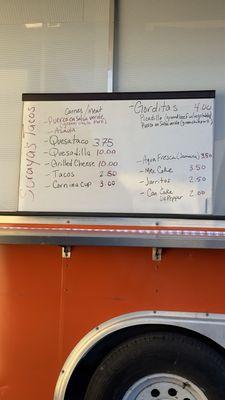 Surayas Tacos
Carnes/meat
-Puerco en Salsa Verde
-Asada
- Quesataco 3.75
- Quesadilla 10.00
-Grilled Cheese 10.00
- Tacos 2.50
- Corn in a Cup 3.00
-Gorditas 4.00
Picadillo (ground beef w/vegetables)
Puerco en Salsa Verde
-Agua Fresca (Jamaica) 3.50
- Mex Coke 3.50
- Jarritos 2.50
- Can Coke 2.00
Dr Pepper